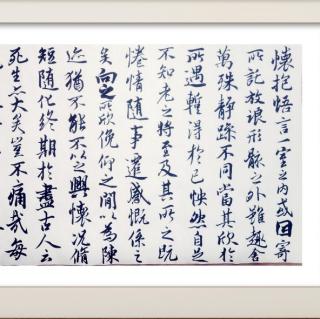 懷抱悟言一室之內或因寄
所託放浪形骸之外雖趣舍
萬殊靜躁不同當其欣於
所遇暫得於己怏然自足
不知老之將至及其所之既
惓情隨事遷感慨係之
矣向之所欣俛仰之間以為陳
迹猶不能不以之興懷況脩
短隨化終期於盡古人云
死生亦大矣豈不痛哉每